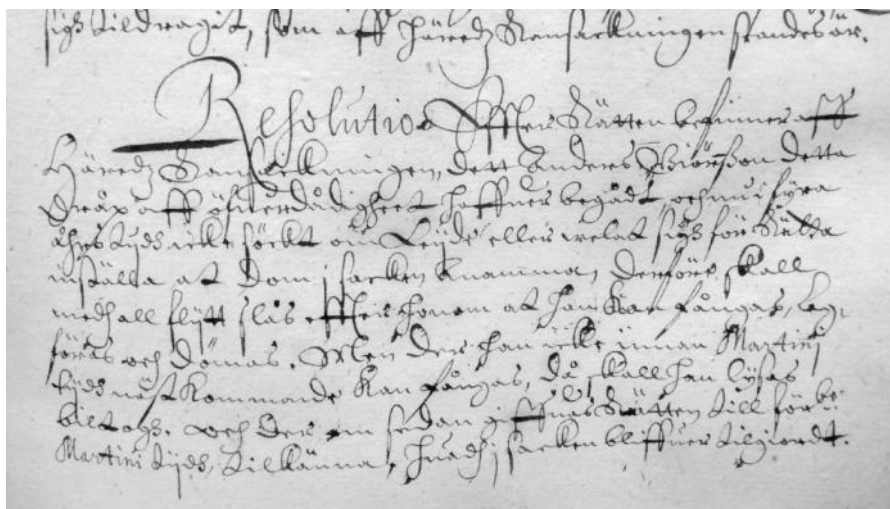 sigh tildragit, som aff Häredz Ransackningen sta̅ndes är.
Resolutio. Effter Rätten befinner aff
Häredz Ransackningen, dett Anders Biörsson detta
dråp aff öfwerdådigheet haffuer begådt, och nu i fyra
åhrs tijdh icke söckt om Leijde eller welat sigh för Rätta
inställa at dom i saken anamma, derföre skall
medh all flijtt slås effter honom at han kan fångas, lag-
föras och dömas. Men der han icke innan Martini
tijdh näst kommande kan fångas, då skall han lysas
biltogh. och der om sedan giffuas Rätten till förbe:
Martini tijdh, tilkänna, huadh i saken bliffuer tilgiordt.